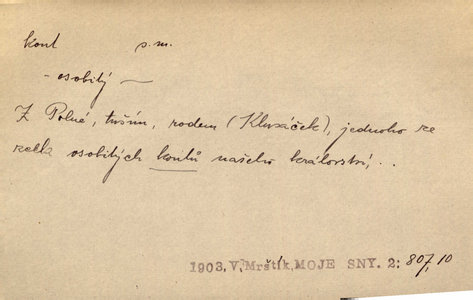 kout s. m.
- osobitý —
Z Polné, tuším, rodem (Klusáček), jednoho ze
zcela osobitých koutů našeho království, . .
1903, V. Mrštík, MOJE SNY. 2; 807, 10